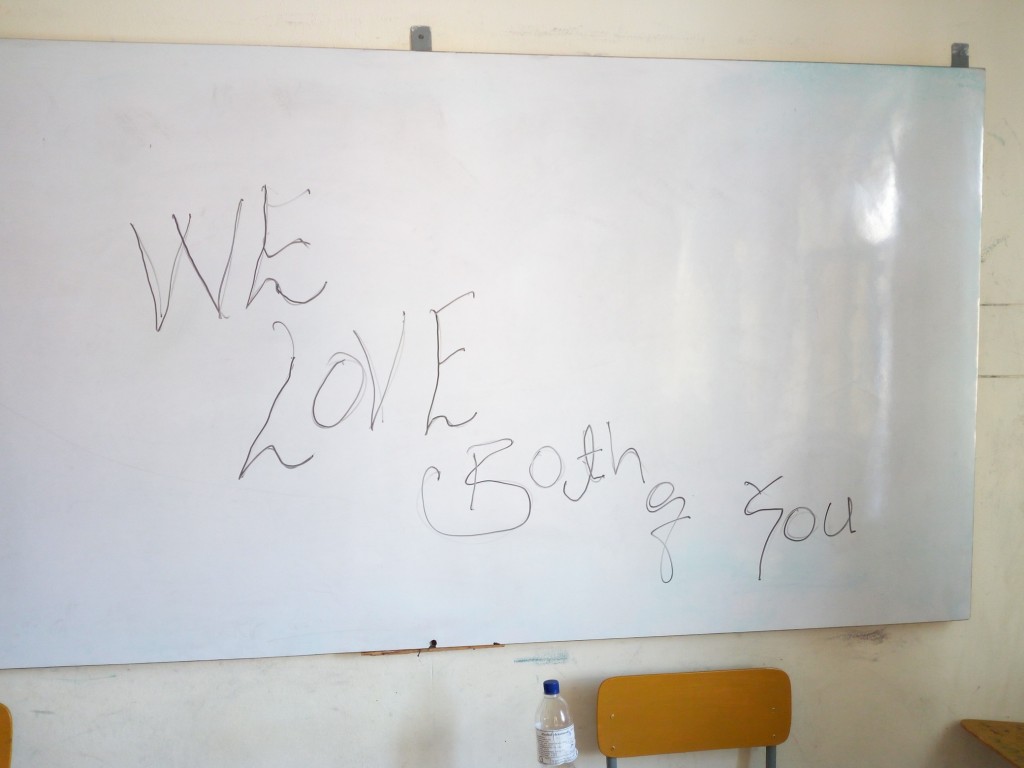 WE
LOVE
Both of You